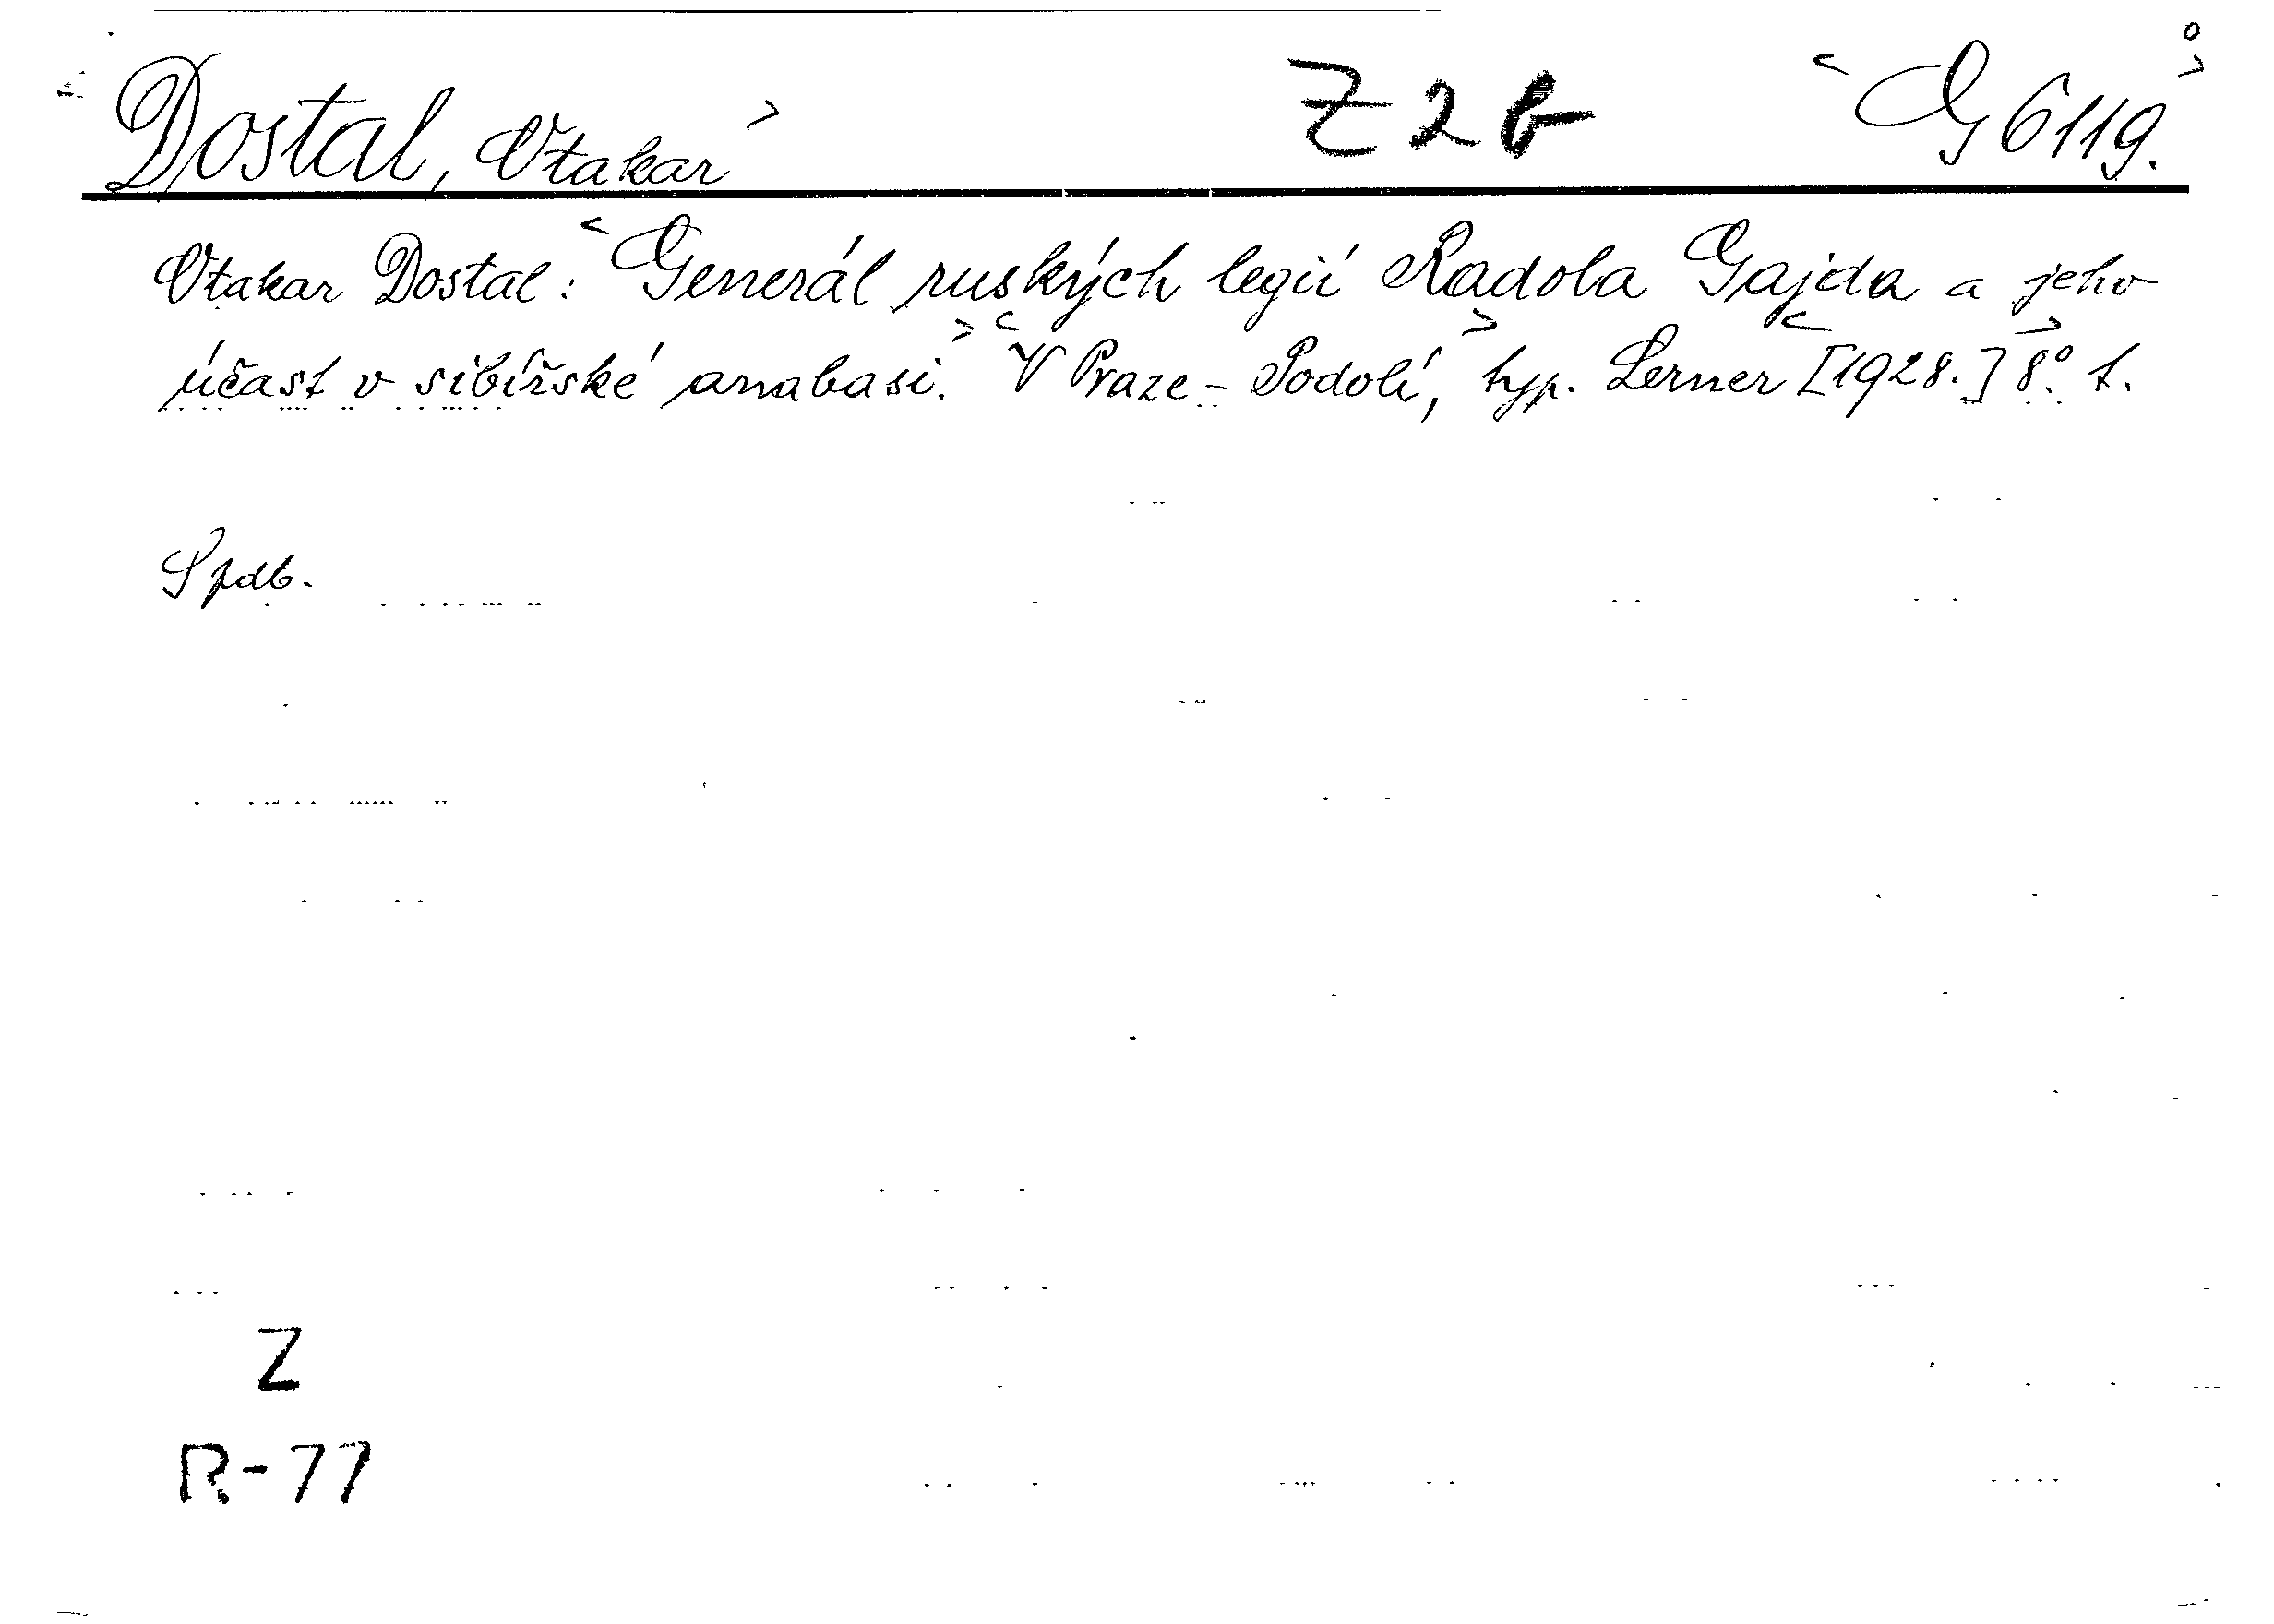 <Dostal, Otakar> Z 2 b <G 6119.>
Otakar Dostal: <Generál ruských legií Radola Gajda a jeho
účast v sibířské anabasi.> <V Praze - Podolí,> typ. Lerner <[1928.]> 8°. 1.
Spdb.
Z
R-77